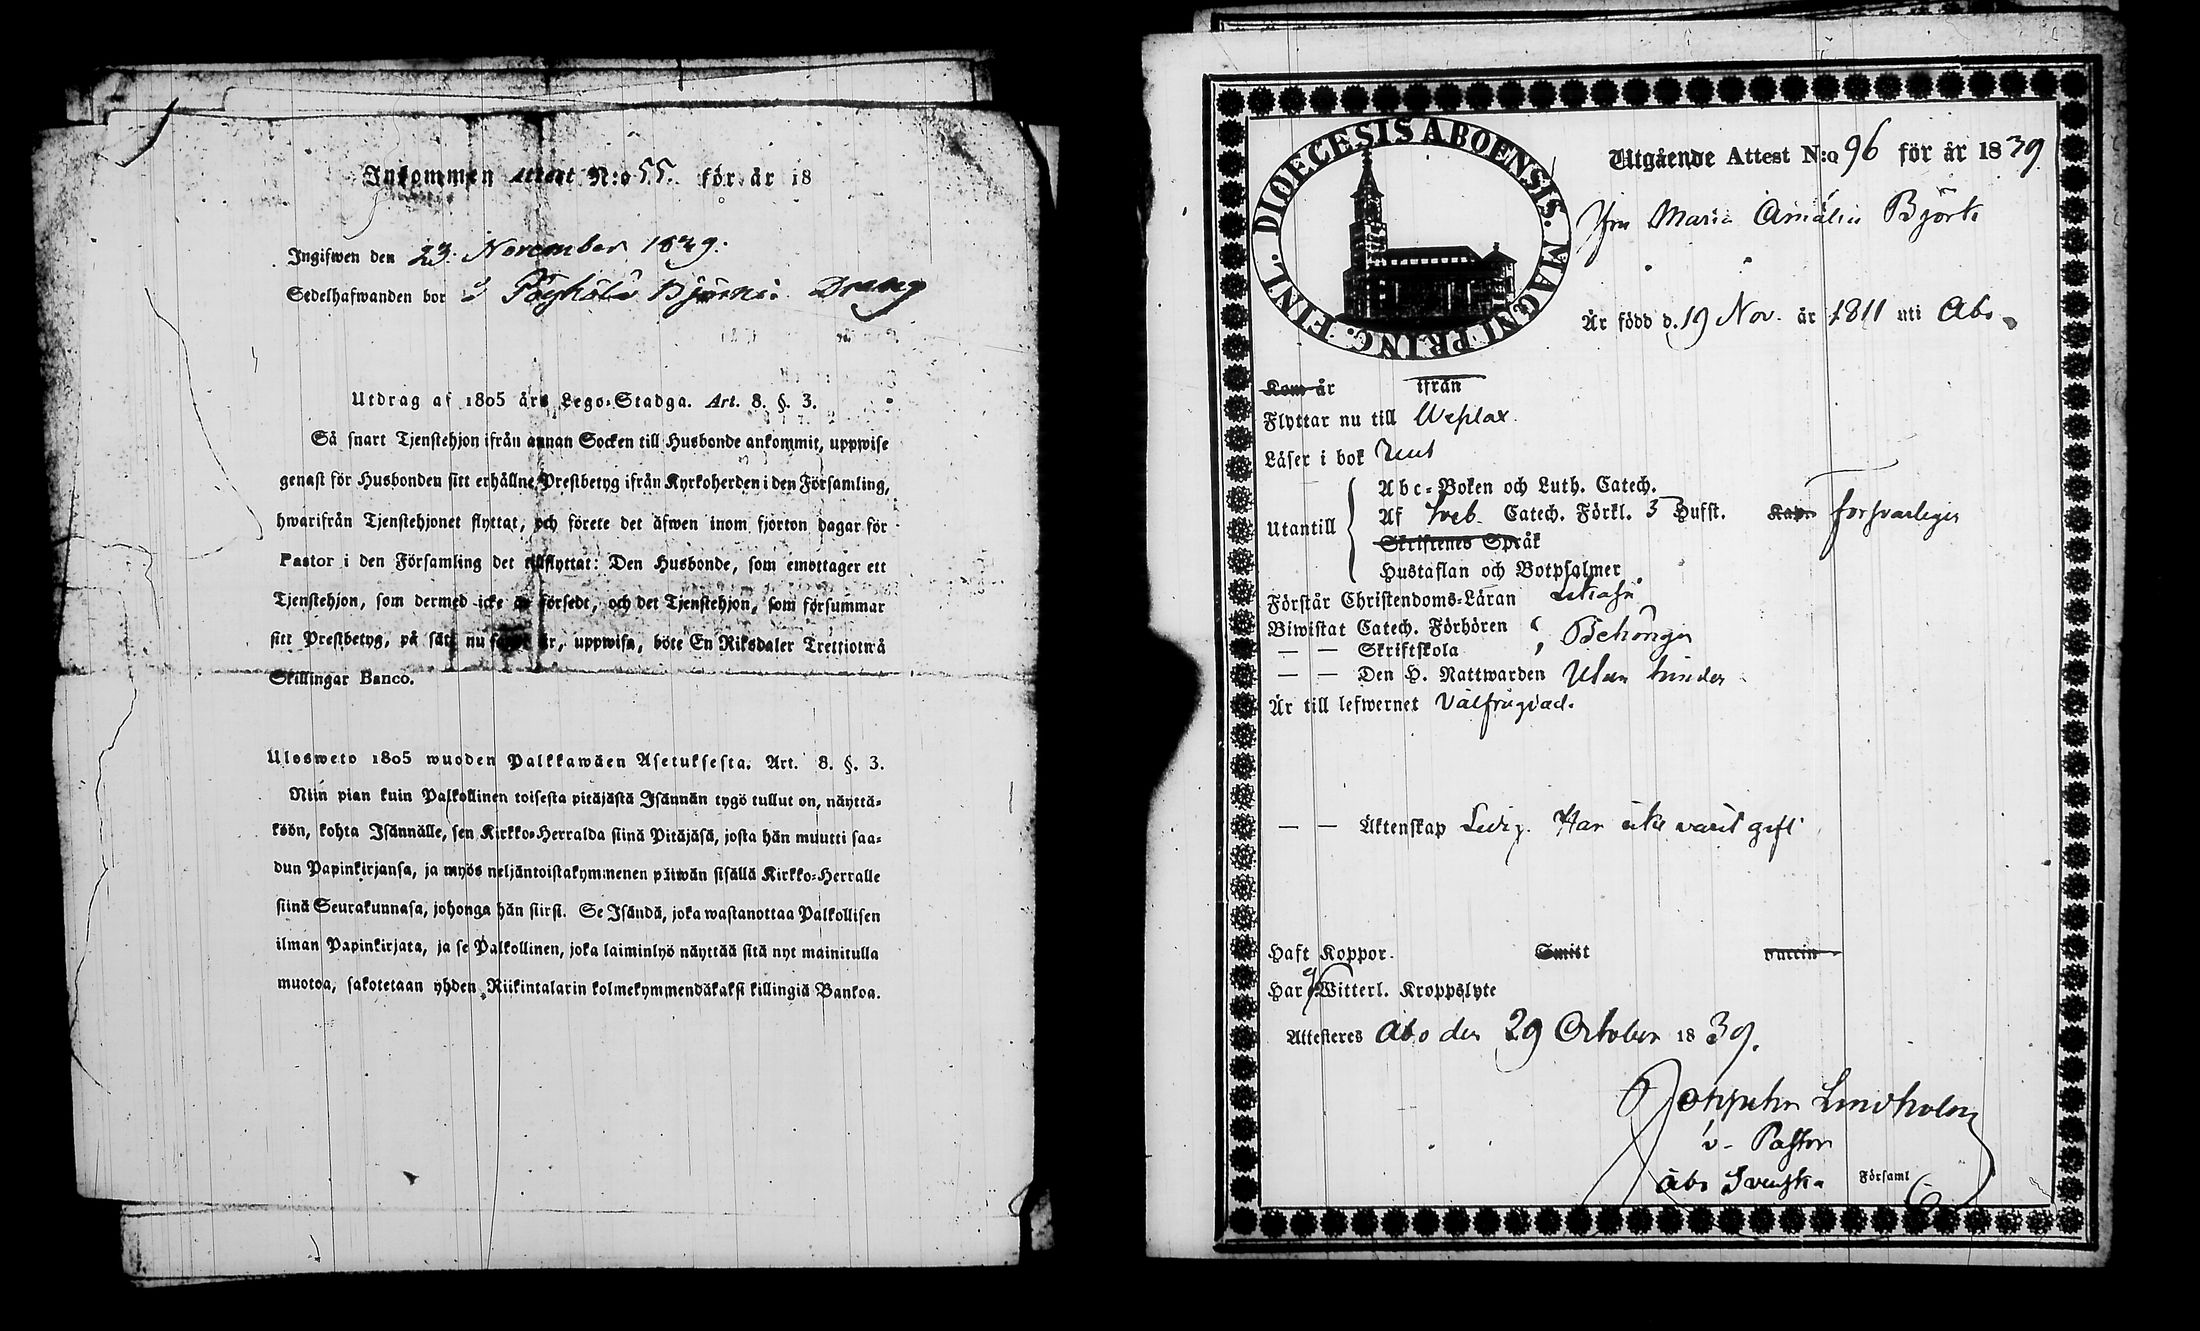 Inkommen attest N:o 55. för år 18
Ingifwen den 23. November 1839.
Sedelhafwanden bor
Utdrag af 1805 års Lego-Stadga. Art. 8. §. 3.
Så snart Tjenstehjon ifrån annan Socken till Husbonde ankommit, uppwise
genast för Husbonden sitt erhållne Prestbetyg ifrån Kyrkoherden i den Församling,
hwarifrån Tjenstehjonet flyttat, och förete det äfwen inom fjorton dagar för
Pastor i den Församling det tillflyttat: Den Husbonde, som emottager ett
Tjenstehjon, som dermed icke är försedt, och det Tjenstehjon, som försummar
sitt Prestbetyg, på sätt nu sagdt är, uppwisa, böte En Riksdaler Trettiotwå
Skillingar Banco.
Ulosweto 1805 wuoden Palkkawäen Asetuksesta. Art. 8. §. 3.
Niin pian kuin Palkollinen toisesta pitäjästä Isännän tygö tullut on, näyttä-
köön, kohta Isännälle, sen Kirkko-Herralda siinä Pitäjäsä, josta hän muutti saa-
dun Papinkirjansa, ja myös neljäntoistakymmenen päiwän sisällä Kirkko-Herralle
siinä Seurakunnasa, johonga hän siirsi. Se Isändä, joka wastanottaa Palkollisen
ilman Papinkirjata, ja se Palkollinen, joka laiminlyö näyttää sitä nyt mainitulla
muotoa, sakotetaan yhden Riikintalarin kolmekymmendäkaksi killingiä Bankoa.
DIOECESIS ABOENSIS. MAGNI PRINC. FINL.
Utgående Attest N:o 96 för år 1839
Jfru Maria Amalia Björk
Är född d. 19 Nov. år 1811 uti Åbo
Kom år ifrån
Flyttar nu till
Läser i bok Rent
Utantill
Abc-Boken och Luth. Catech.
Af Sveb. Catech. Förkl. 3 Hufst. Kap. Försvarligen
Skriftenes Språk
Hustaflan och Botpsalmer
Förstår Christendoms-Läran
Biwistat Catech. Förhören
— — Skriftskola Behörigen
— — Den H. Nattwarden Utan hinder
Är till lefwernet Välfrägdad.
— — Äktenskap Ledig. Har icke varit gift
Haft Koppor. Smitt Vaccin
Har ej Witterl. Kroppslyte
Attesteres Åbo den 29 October 1839.
Lindholm
v. Pastor
Åbo Svenska Församl